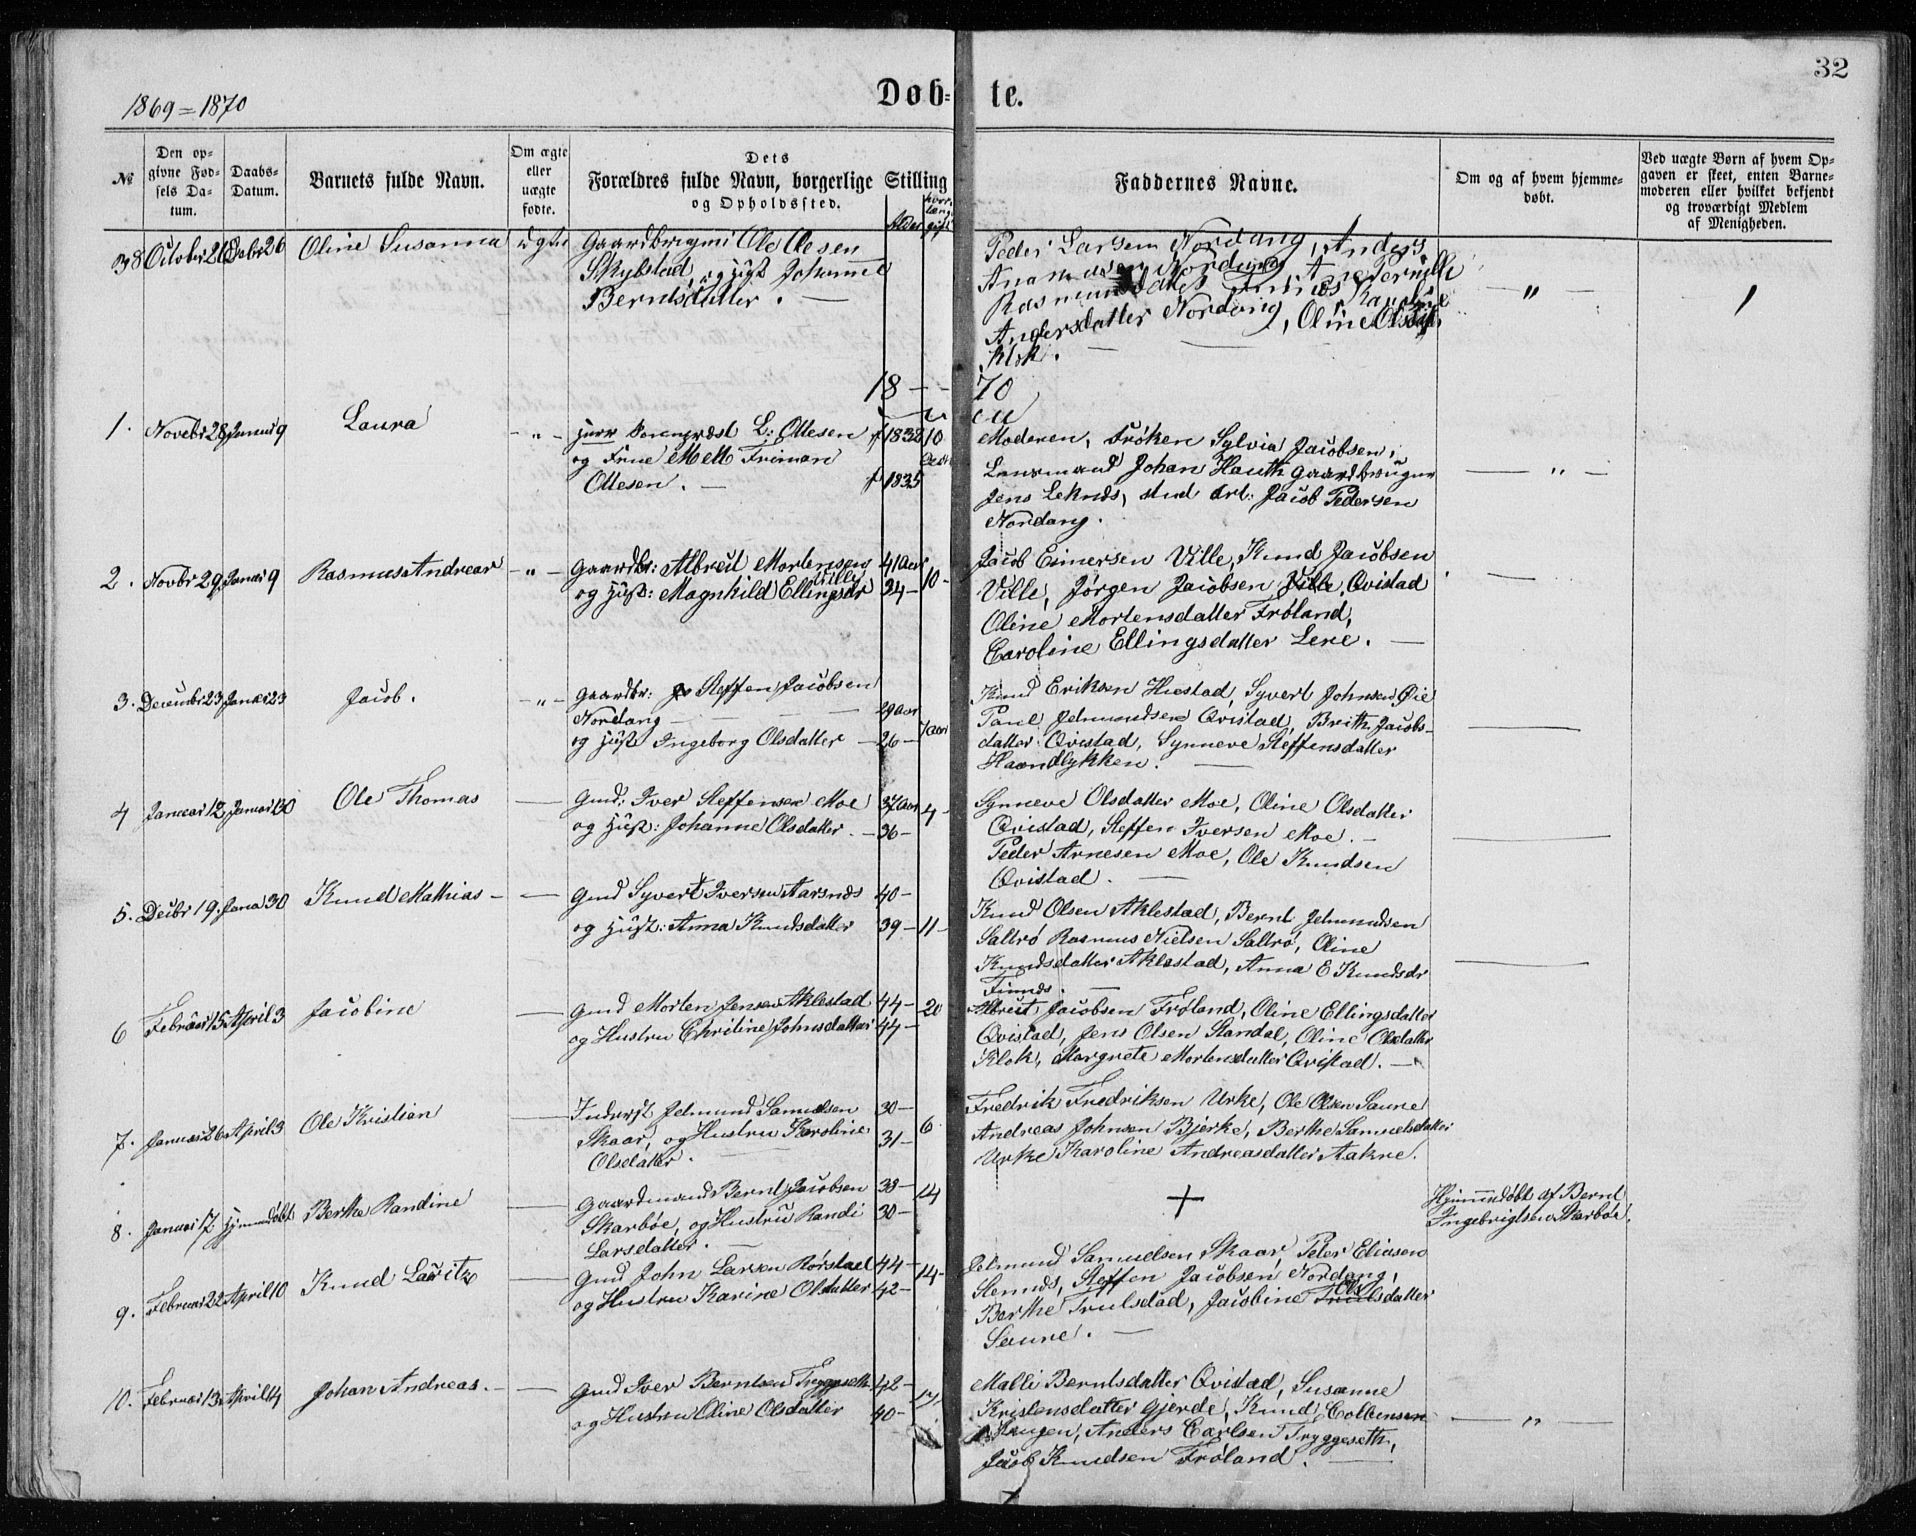 32
1869=1870
Døb- te.
№
Den op-
givne Fød-
sels Da-
tum.
Daabs-
Datum.
Barnets fulde Navn.
Om ægte
eller
uægte
fødte.
Dets
Forældres fulde Navn, borgerlige Stilling
og Opholdssted.
Alder
hvor
længe
gift
Faddernes Navne.
Om og af hvem hjemme-
døbt.
Ved uægte Børn af hvem Op-
gaven er skeet, enten Barne-
moderen eller hvilket bekjendt
og troværdigt Medlem
af Menigheden.
38 October 26 26 Oline Susanna ægte
Gaardbrugm: Ole Olesen
Skylstad, og Hust Johanne
Berntsdatter. —
Peder Larsen Nordang, Anders
Nordang, Ane Pernille
Rasmusdatter Karoline
Andersdatter Nordang, Oline Olsdtr
Klok.
18 — 70
1. Novebr 28 Januar 9 Laura - " -
Herr Sognepræst L: Ottesen f 1832 10
og Frue Friman
Ottesen. — f 1835
Moderen, Frøken Sylvia Jacobsen,
Lensmand Johan Hauth Gaardbruger
Jens Leknæs, stud art: Jacob Pedersen
Nordang.
— " —
2. Novbr 29. Januar 9 Rasmus Andreas - " -
Gaardbr: Albreit Mortensen Ville 41 Aar
og Hust: Magnhild Ellingsdr 34 - 10 -
Jacob Eimersen Ville, Knud Jacobsen
Ville, Jørgen Jacobsen Ville, Qvistad
Oline Mortensdatter Frøland,
Caroline Ellingsdatter Lere. —
3. Decembr 23 Januar 23 Jacob. - " -
Gaardbr: Steffen Jacobsen
Nordang — 29 Aar
og Hust Ingeborg Olsdatter — 26 — 7 Aar
Knud Eriksen Hustad, Syvert Johnsen Øie
Paul Jetmundsen Qvistad, Brith Jacobs-
datter Qvistad, Synneve Steffensdatter
Haandlykken. —
4 Januar 12 Januar 30 Ole Thomas —
Gmd: Iver Steffensen Moe 37 Aar 4 -
og Hust: Johanne Olsdatter. — 36 -
Synneve Olsdatter Moe, Oline Olsdatter
Qvistad, Steffen Iversen Moe. —
Peder Arnesen Moe, Ole Knudsen
Qvistad. —
5. Decbr 19. Janua 30 Knud Mathias - —
Gmd Syvert Iversen Aarsnæs 40 -
og Hust: Anna Knudsdatter 39 - 11 -
Knud Olsen Aklestad, Bernt Jetmundsen
Saltrø Rasmus Nielsen Saltrø, Oline
Knudsdatter Aklestad, Anna E Knudsdr
Finnes. —
6 Februar 15 April 3 Jacobine —
Gmd Morten Jensen Aklestad 44 - 20
og Hustru Christine Johnsdatter 44 -
Albreit Jacobsen Frøland, Oline Ellingsdatter
Qvistad, Jens Olsen Standal, Oline Olsdatter
Klok, Margrete Mortensdatter Qvistad. —
7. Januar 26 April 3 Ole Kristian —
Inderst Jetmund Samuelsen 30 -
Skaar, og Hustru Karoline 31 - 6
Olsdatter. —
Fredrik Fredriksen Urke, Ole Olsen Saure
Andreas Johnsen Bjerke, Berthe Samuelsdatter
Urke Karoline Andreasdatter Aakre.
8. Januar 17. hjemmedøbt Berthe Randine —
Gaardmand Bernt Jacobsen 38 - 14
Skarbøe, og Hustru Randi 30 -
Larsdatter. —
+
Hjemmedøbt af Bernt
Ingebrigtsen Skarbøe.
9. Februar 22 April 10 Knud Lauritz —
Gmd John Larsen Rørstad 44 - 14 -
og Hustru Karine Olsdatter 42 -
Jetmund Samuelsen Skaar, Peter Eliasen
Stennæs, Steffen Jacobsen Nordang,
Berthe Trulsdad, Jacobine Olsdatter
Saure. —
10. Februar 13 April 14 Johan Andreas. - —
Gmd Iver Berntsen Tryggeseth 42 -
og Hustru Oline Olsdatter 40 - 17
Malli Berntsdatter Qvistad, Susanne
Kristensdatter Gjerde, Knud Colbensen
Haugen, Anders Carlsen Tryggeseth,
Jacob Knudsen Frøland. —
— " —